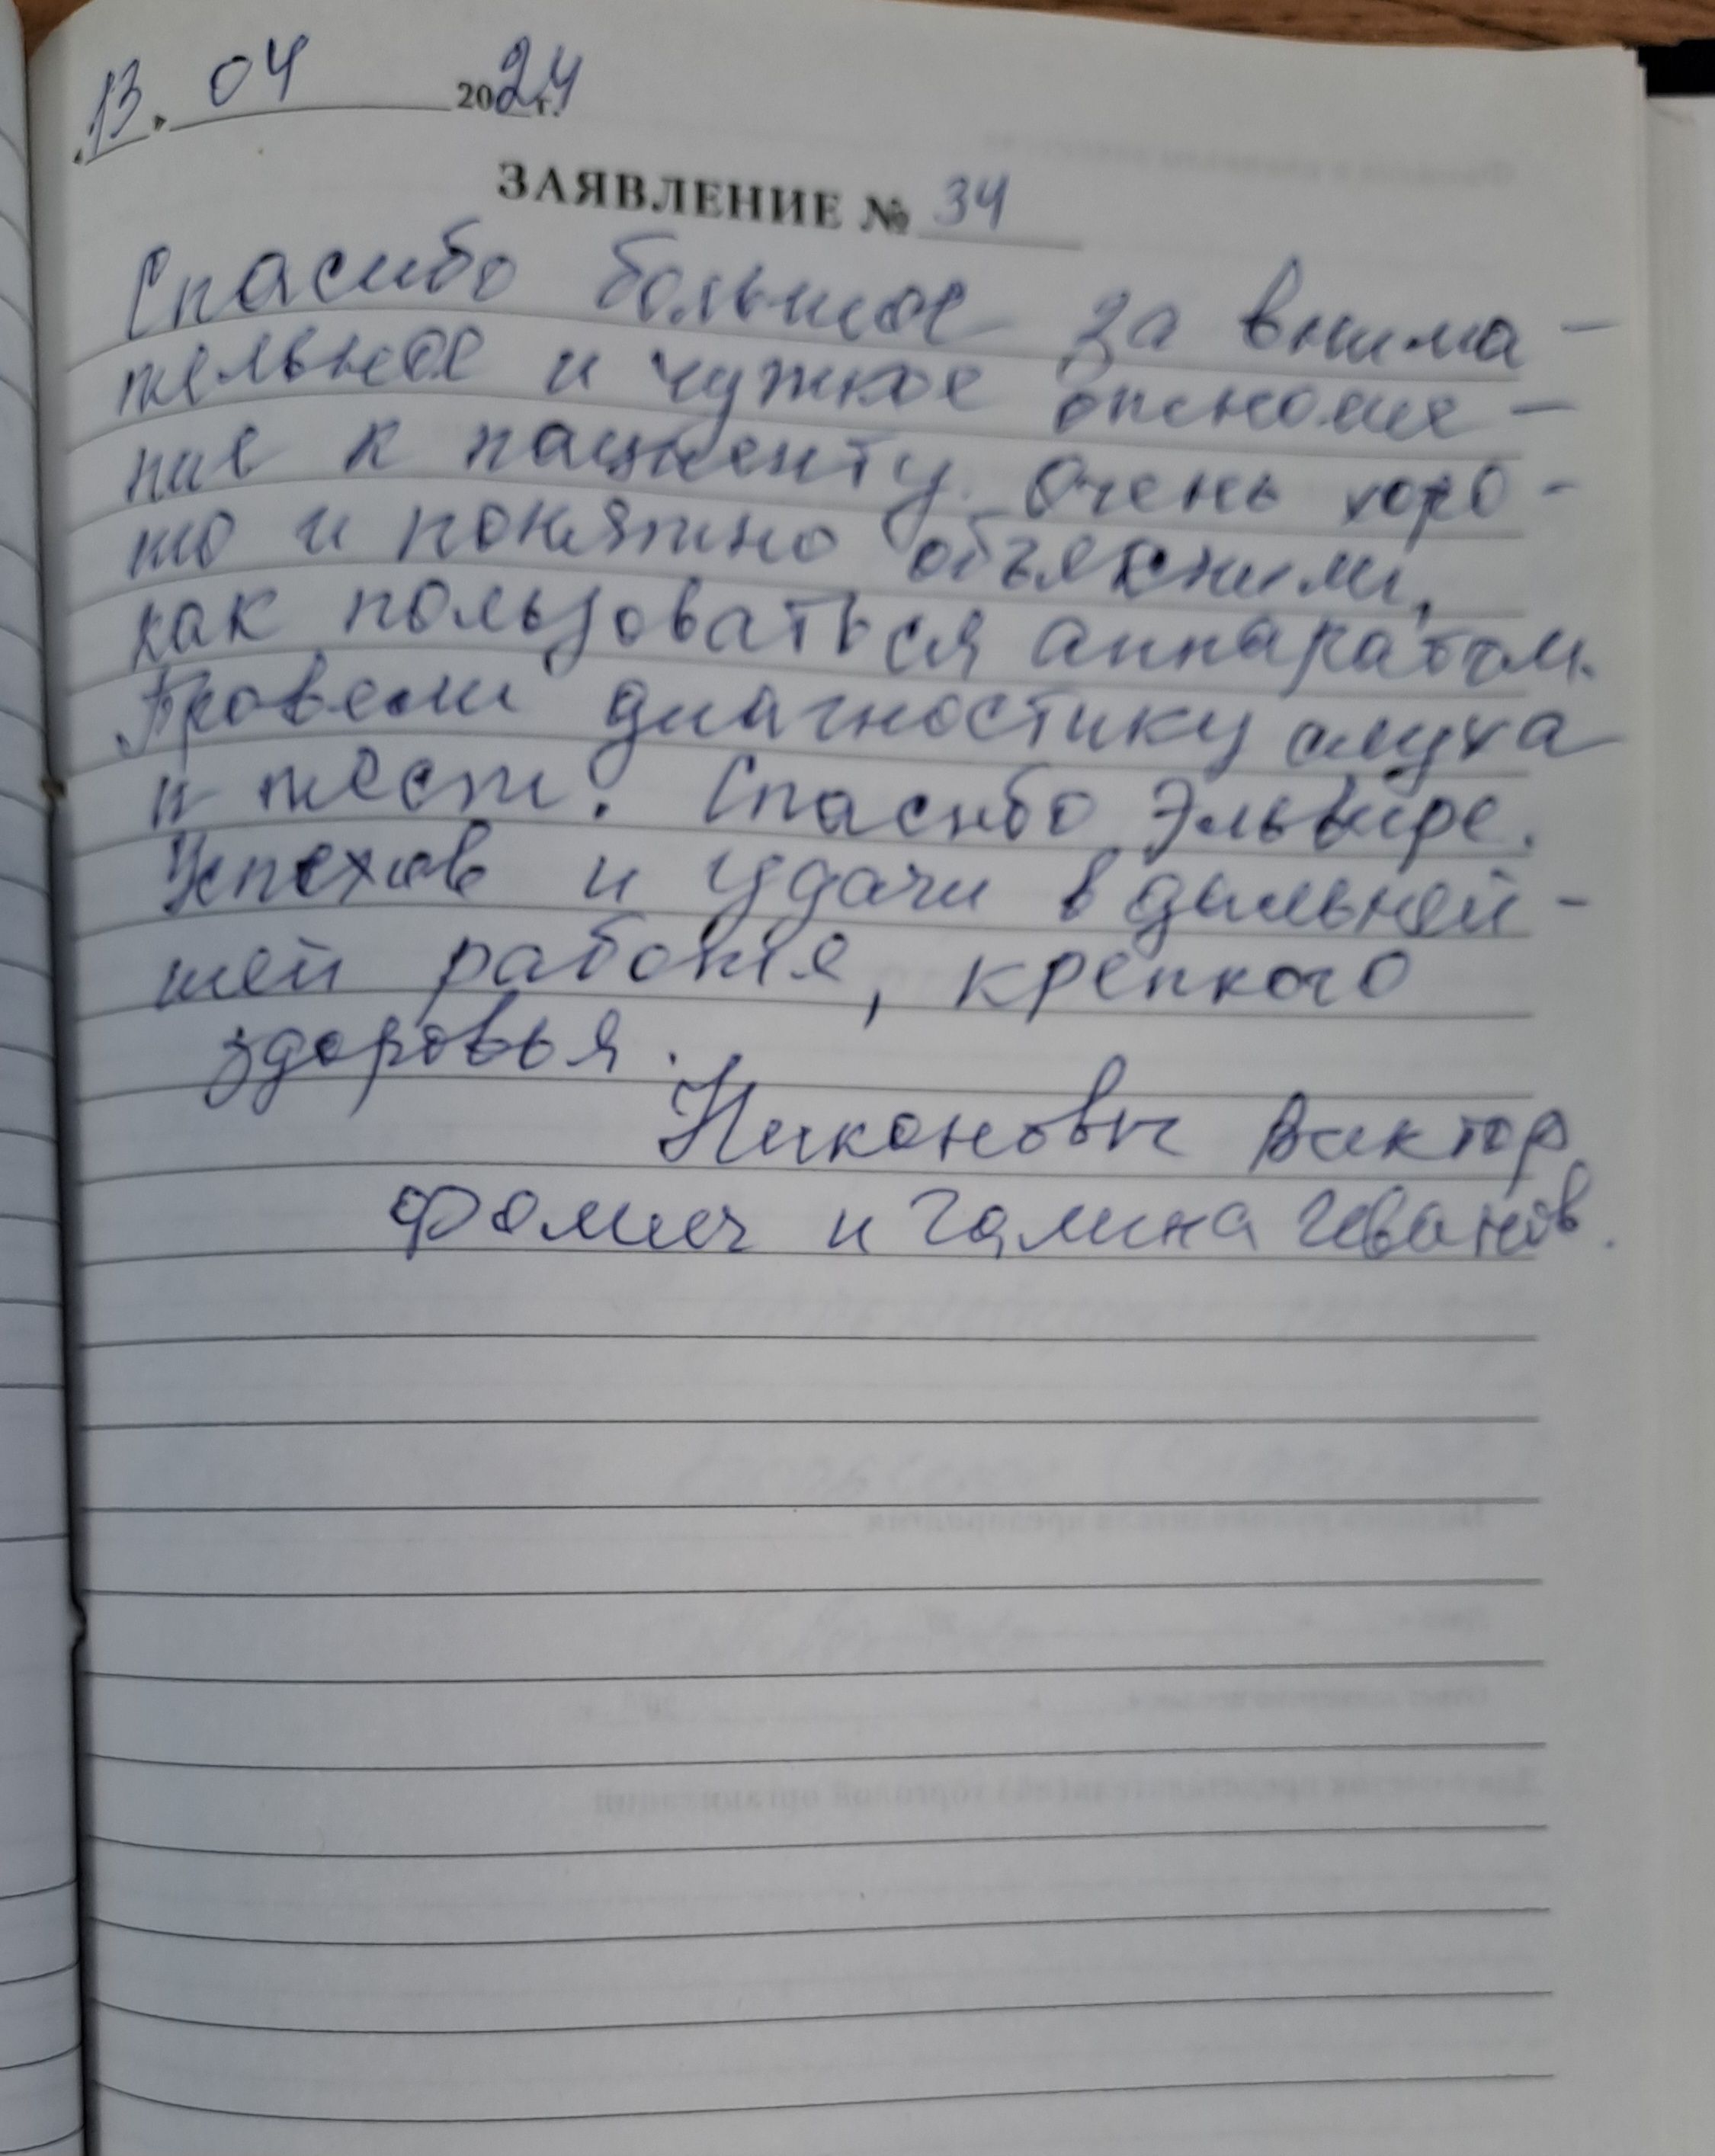 "13." 04 2024 г.
ЗАЯВЛЕНИЕ № 34
Спасибо большое за внима-
тельное и чуткое отноше-
ние к пациенту. Очень хоро-
шо и понятно объяснили,
как пользоваться аппаратом.
Провели диагностику слуха
и тест. Спасибо Эльвире.
Успехов и удачи в дальней-
шей работе, крепкого
здоровья.
Никоновы Виктор
Фомич и Галина Иванов.